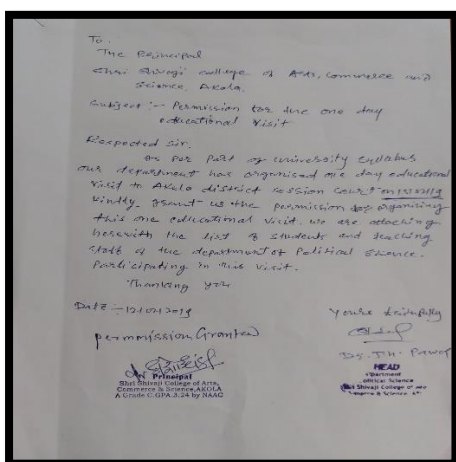 To.
The Principal
Shri Shivaji college of Arts, Commerce and
Science, Akola.
Subject :- Permission for the one day
educational Visit
Respected Sir.
As per Part of university Syllabus
our department has organised one day educational
visit to Akola district session Court on
kindly grant us the permission for organising
this one educational visit. We are attaching
herewith the list of students and teaching
staff of the department of Political Science.
Participating in this visit.
Thanking you
Date :-
Yours faithfully
permission Granted
Principal
Shri Shivaji College of Arts,
Commerce & Science, AKOLA
A Grade C.GPA.3.24 by NAAC
HEAD
Department
olitical Science
Shri Shivaji College of